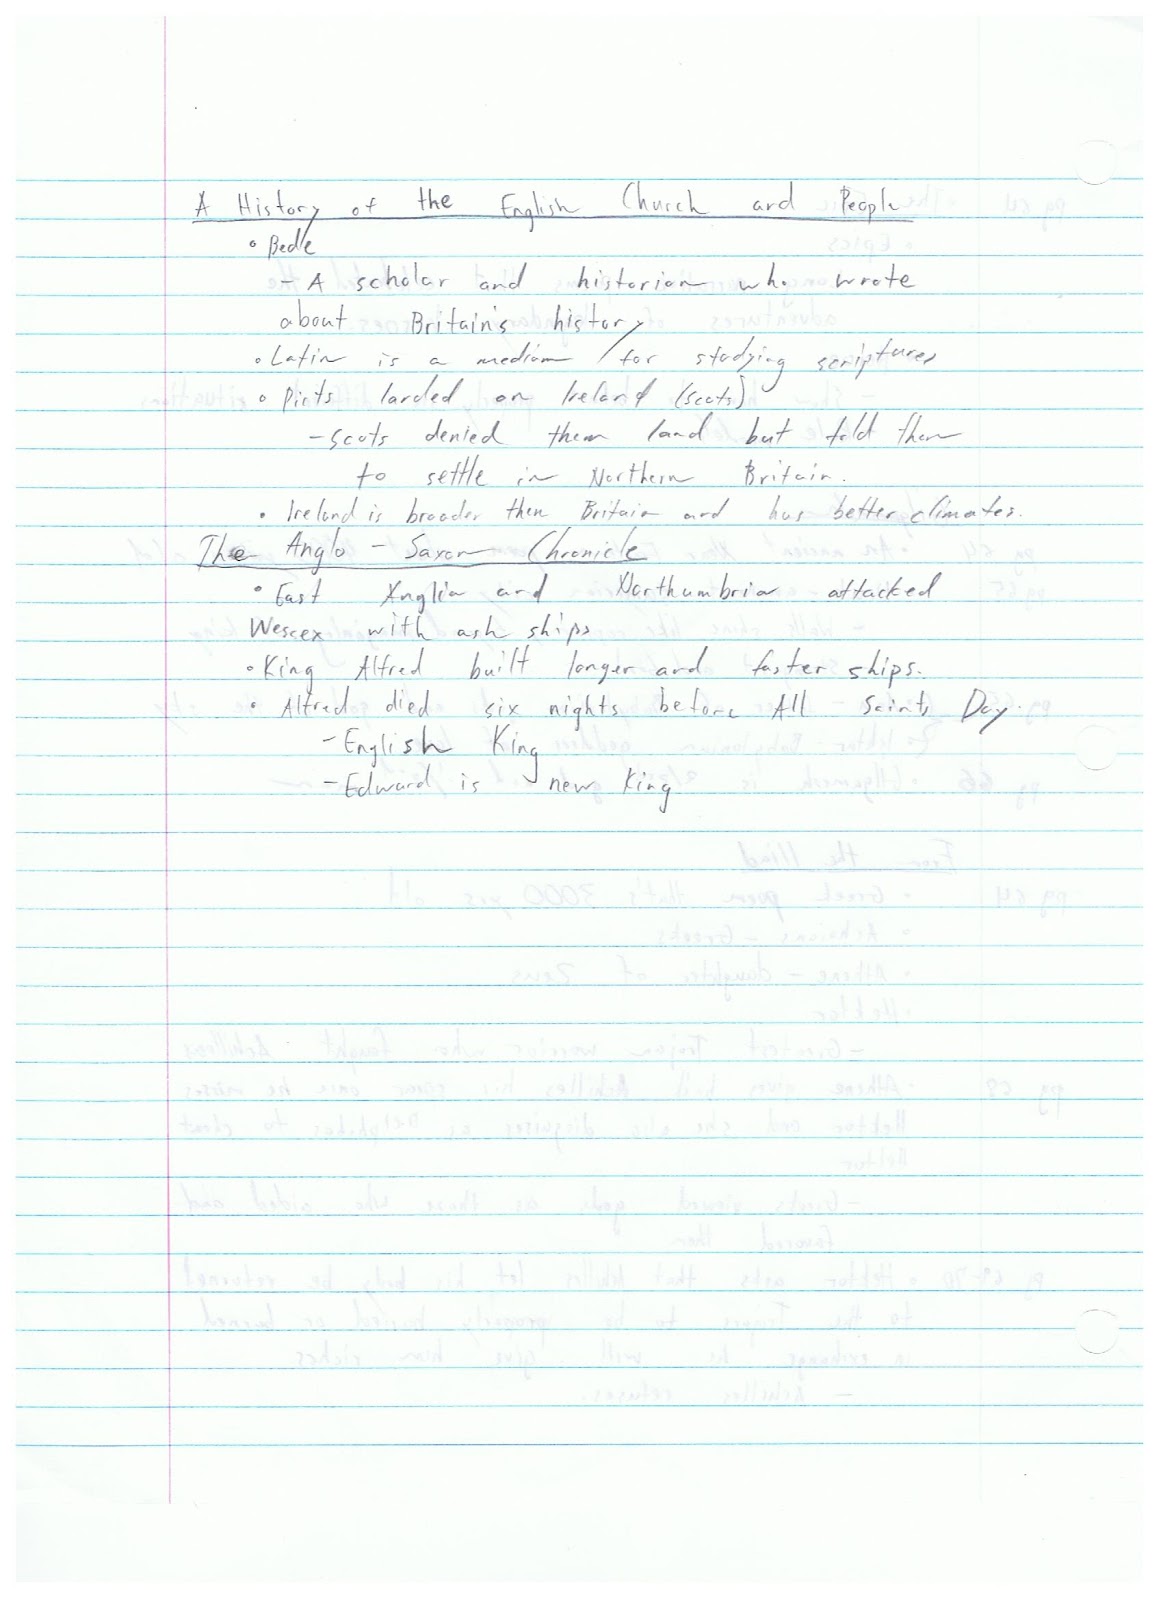 A History of the English Church and People
• Bede
- A scholar and historian who wrote
about Britain's history
• Latin is a medium for studying scriptures
• Picts landed on Ireland (Scots)
- Scots denied them land but told them
to settle in Northern Britain.
• Ireland is broader then Britain and has better climates.
The Anglo-Saxon Chronicle
• East Anglia and Northumbria attacked
Wessex with ash ships
• King Alfred built longer and faster ships.
• Alfred died six nights before All Saints Day.
- English King
- Edward is new King